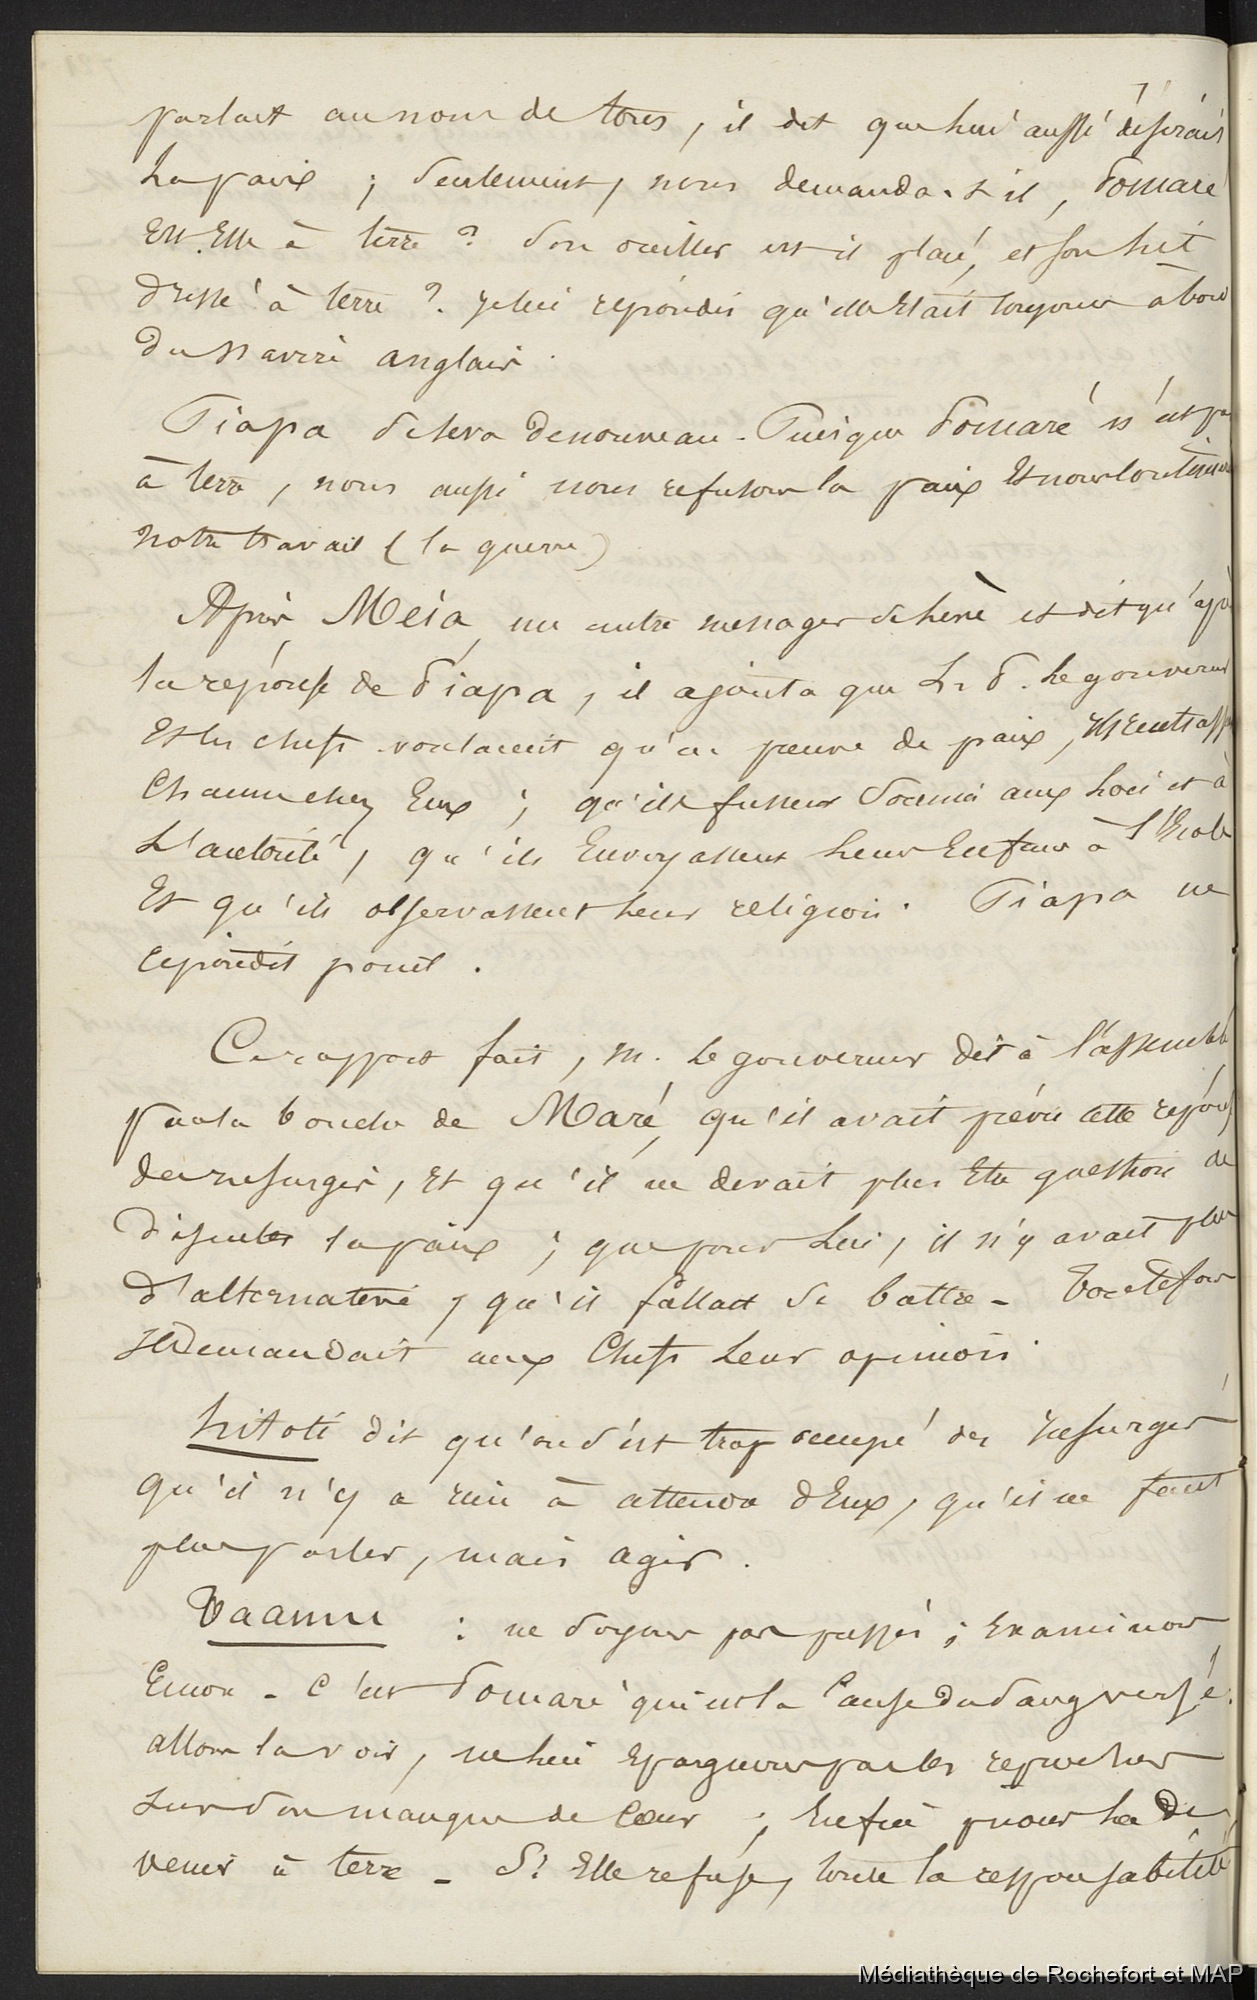 parlait au nom de tous, il dit que lui aussi désirait
la paix ; seulement, nous demanda-t-il, Pomaré
est-elle à terre ? Son oreiller est-il placé, et son lit
dressé à terre ? Je lui répondis qu'elle était toujours à bord
du navire anglais.
Piapa se leva de nouveau. Puisque Pomaré n'est pas
à terre, nous aussi nous refusons la paix et nous continuons
notre travail (la guerre)
Après Meia, un autre messager se lève et dit qu'après
la réponse de Piapa, il ajouta que le gouverneur
et les chefs voulaient qu'en preuve de paix,
chacun chez eux ; qu'ils fussent soumis aux lois et à
l'autorité, qu'ils envoyassent leurs enfans à l'école
et qu'ils observassent leur religion. Piapa ne
répondit point.
Ce rapport fait, M. le gouverneur dit à l'assemblée
par la bouche de Maré, qu'il avait prévu cette réponse
des insurgés, et qu'il ne devait plus être question de
discuter la paix ; que pour lui, il n'y avait plus
d'alternative, qu'il fallait se battre. Toutefois
il demandait aux chefs leur opinion.
Hitoti dit qu'on s'est trop occupé des insurgés
qu'il n'y a rien à attendre d'eux, qu'il ne faut
plus parler, mais agir.
: ne soyons pas pressés ; examinons
encore. C'est Pomaré qui est la cause du sang versé.
allons la voir, ne lui épargnons pas les reproches
sur son manque de coeur ; enfin prions la de
venir à terre. Si elle refuse, toute la responsabilité
Médiathèque de Rochefort et MAP